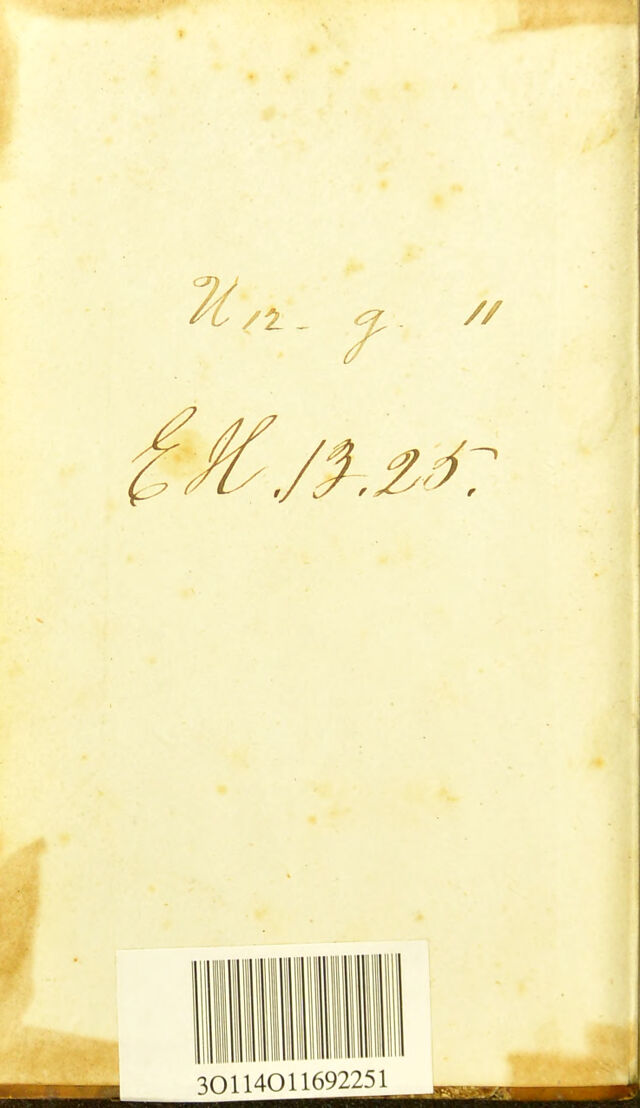 U 12 - g. 11
EH.13.25.
30114011692251